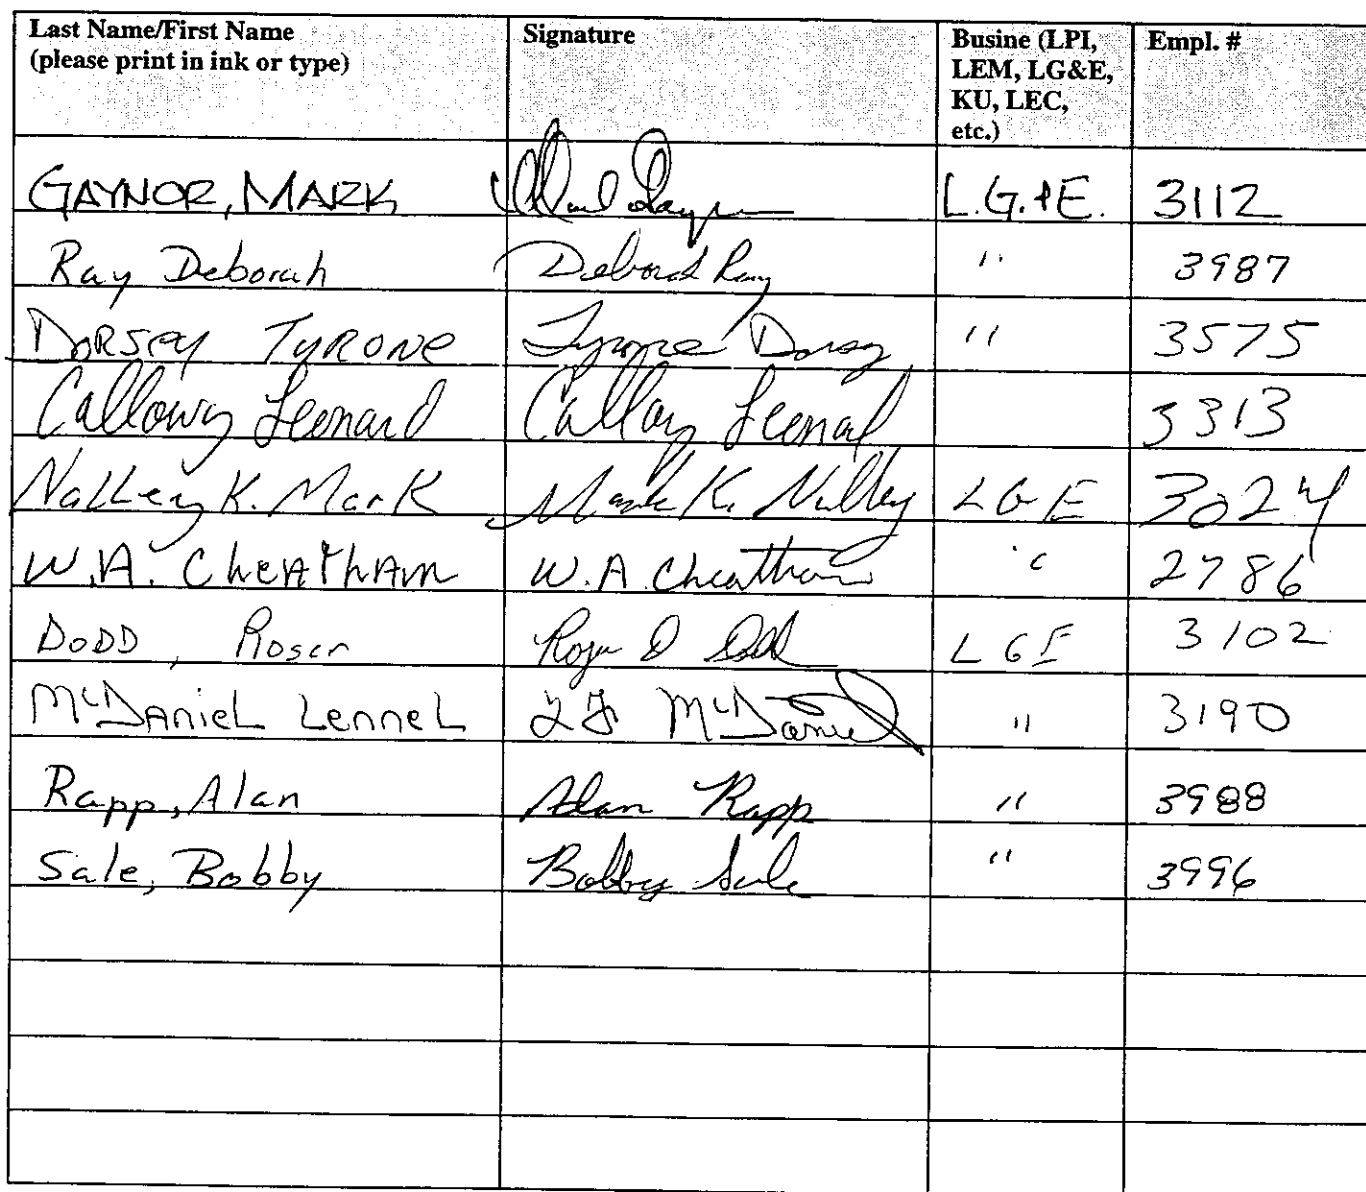 Last Name/First Name Signature Busine (LPI, Empl. #
(please print in ink or type) LEM, LG&E,
KU, LEC,
etc.)
GAYNOR, MARK L.G.&E. 3112
Ray Deborah Deborah Ray " 3987
DORSEY TYRONE Tyrone Dorsey " 3575
Calloway Leonard Calloway Leonard 3313
Nalley K. Mark Mark K. Nalley LGE 3024
W.A. CheAthAm W.A. Cheatham " 2786
DODD, Roger Roger D Dodd LGE 3102
McDAnieL LenneL LF McDaniel " 3190
Rapp, Alan Alan Rapp " 3988
Sale, Bobby Bobby Sale " 3996